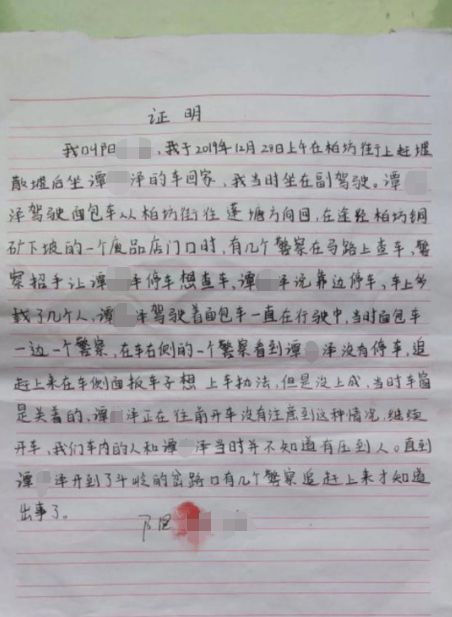 证 明
我叫阳 ，我于2019年12月29日上午在柏坊街上赶堰
散堰后坐谭 泽的车回家，我当时坐在副驾驶。谭
泽驾驶面包车从柏坊街往蓬塘方向回，在途经柏坊铜
矿下坡的一个废品店门口时，有几个警察在马路上查车，警
察招手让谭 车停车想查车，谭 车说靠边停车，车上乡
载了几个人，谭 泽驾驶着面包车一直在行驶中，当时面包车
一边一个警察，在车右侧的一个警察看到谭 泽没有停车，追
赶上来在车侧面扳车子想上车执法，但是没上成，当时车窗
是关着的，谭 泽正在往前开车没有注意到这种情况，继续
开车，我们车内的人和谭 泽当时并不知道有压到人。直到
谭 泽开到了斗岭的岔路口有几个警察追赶上来才知道
出事了。
阳